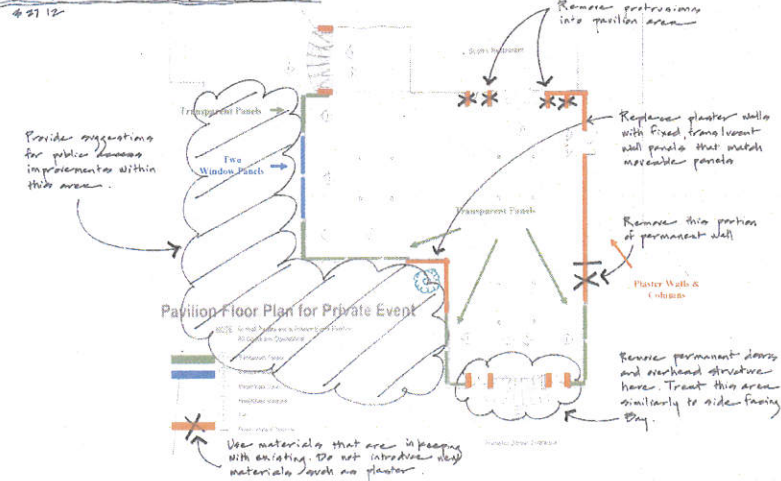 4 27 12
Remove protrusions
into pavilion area
Transparent Panels
Provide suggestions
for public access
improvements within
this area.
Two
Window Panels
Replace plaster walls
with fixed, translucent
wall panels that match
moveable panels
Transparent Panels
Remove this portion
of permanent wall
Plaster Walls &
Columns
Pavilion Floor Plan for Private Event
NOTE:
Remove permanent doors
and overhead structure
here. Treat this area
similarly to side facing
Bay.
Use materials that are in keeping
with existing. Do not introduce new
materials such as plaster.